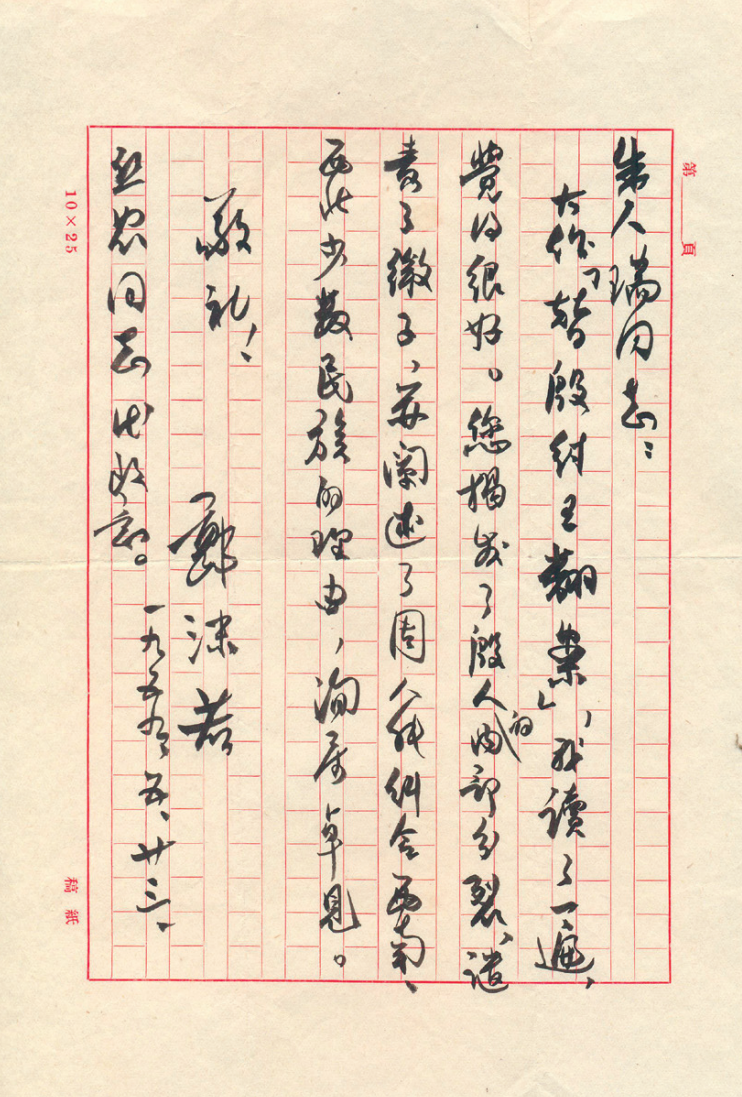 第 頁
朱人瑞同志：
大作「替殷紂王翻案」，我讀了一遍，
覺得很好。您揭发了殷人的内部分裂，谴
责了微子，并阐述了周人能糾合西南、
西北少数民族的理由，洵属卓見。
敬礼！
郭沫若
一九五九、五、廿三、
同志代
10×25
稿紙